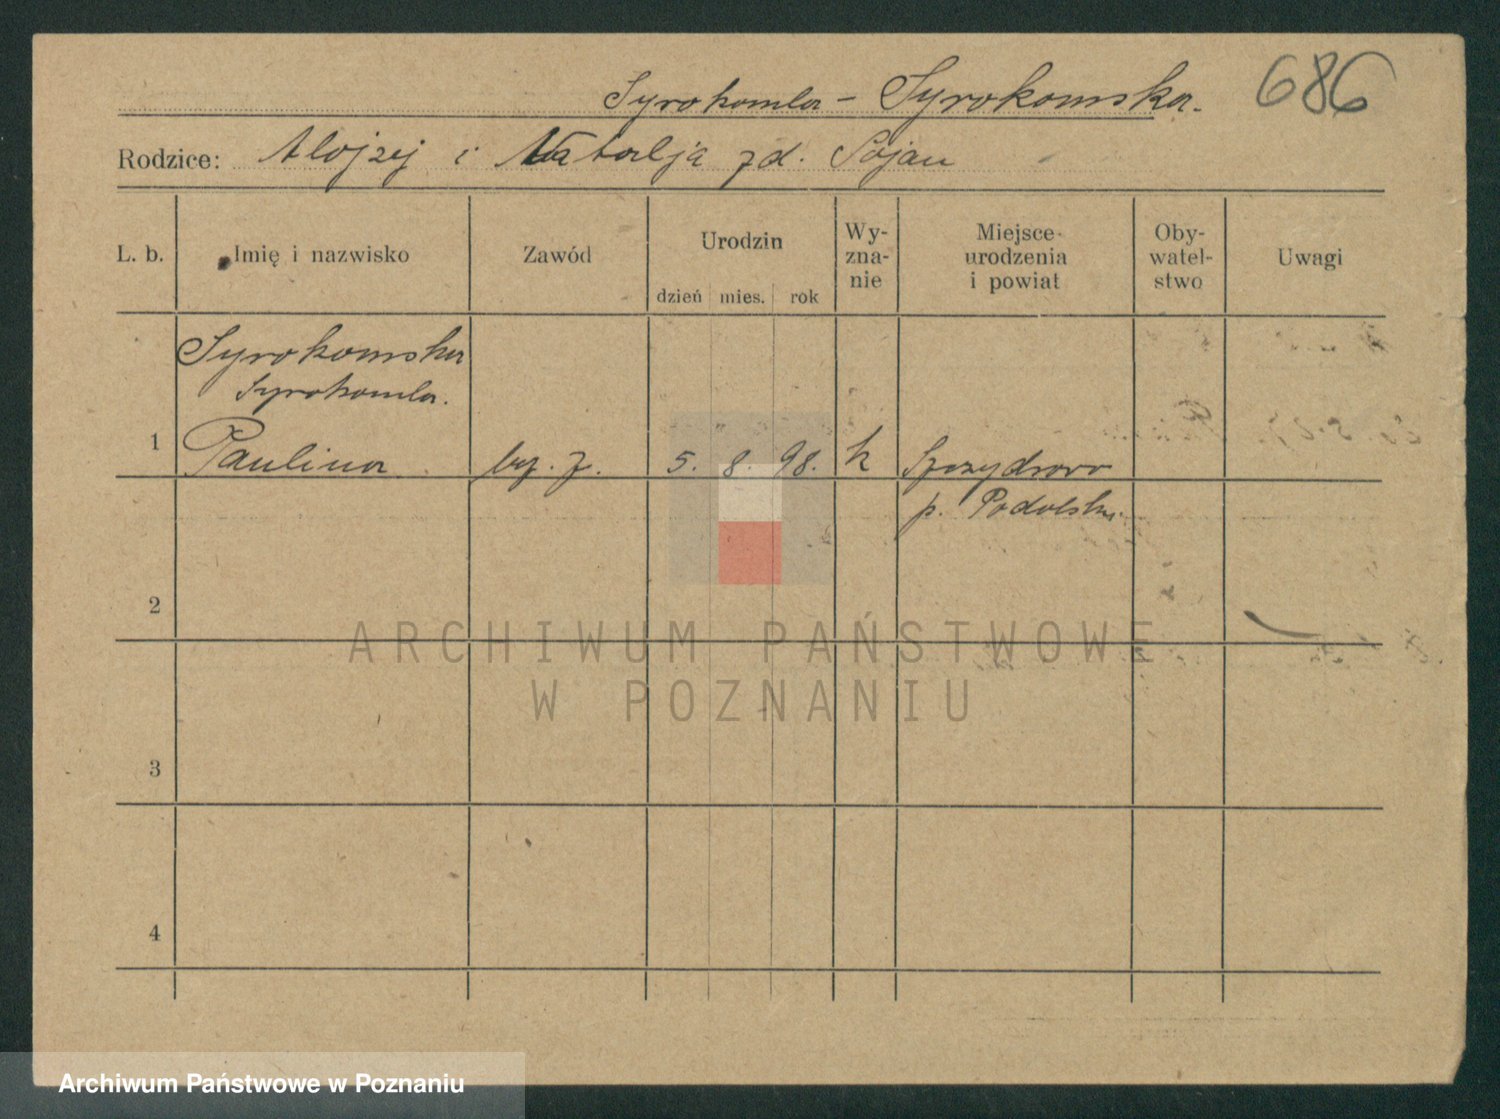 686
Syrokomla - Syrokomska.
Rodzice: Alojzej i Natalja zd. Sojan
L. b. Imię i nazwisko Zawód Urodzin dzień mies. rok Wy-zna-nie Miejsce urodzenia i powiat Oby-watel-stwo Uwagi
Syrokomska
Syrokomla.
1 Paulina 5. 8. 98. k
p. Podolski
2
ARCHIWUM PAŃSTWOWE
W POZNANIU
3
4
Archiwum Państwowe w Poznaniu